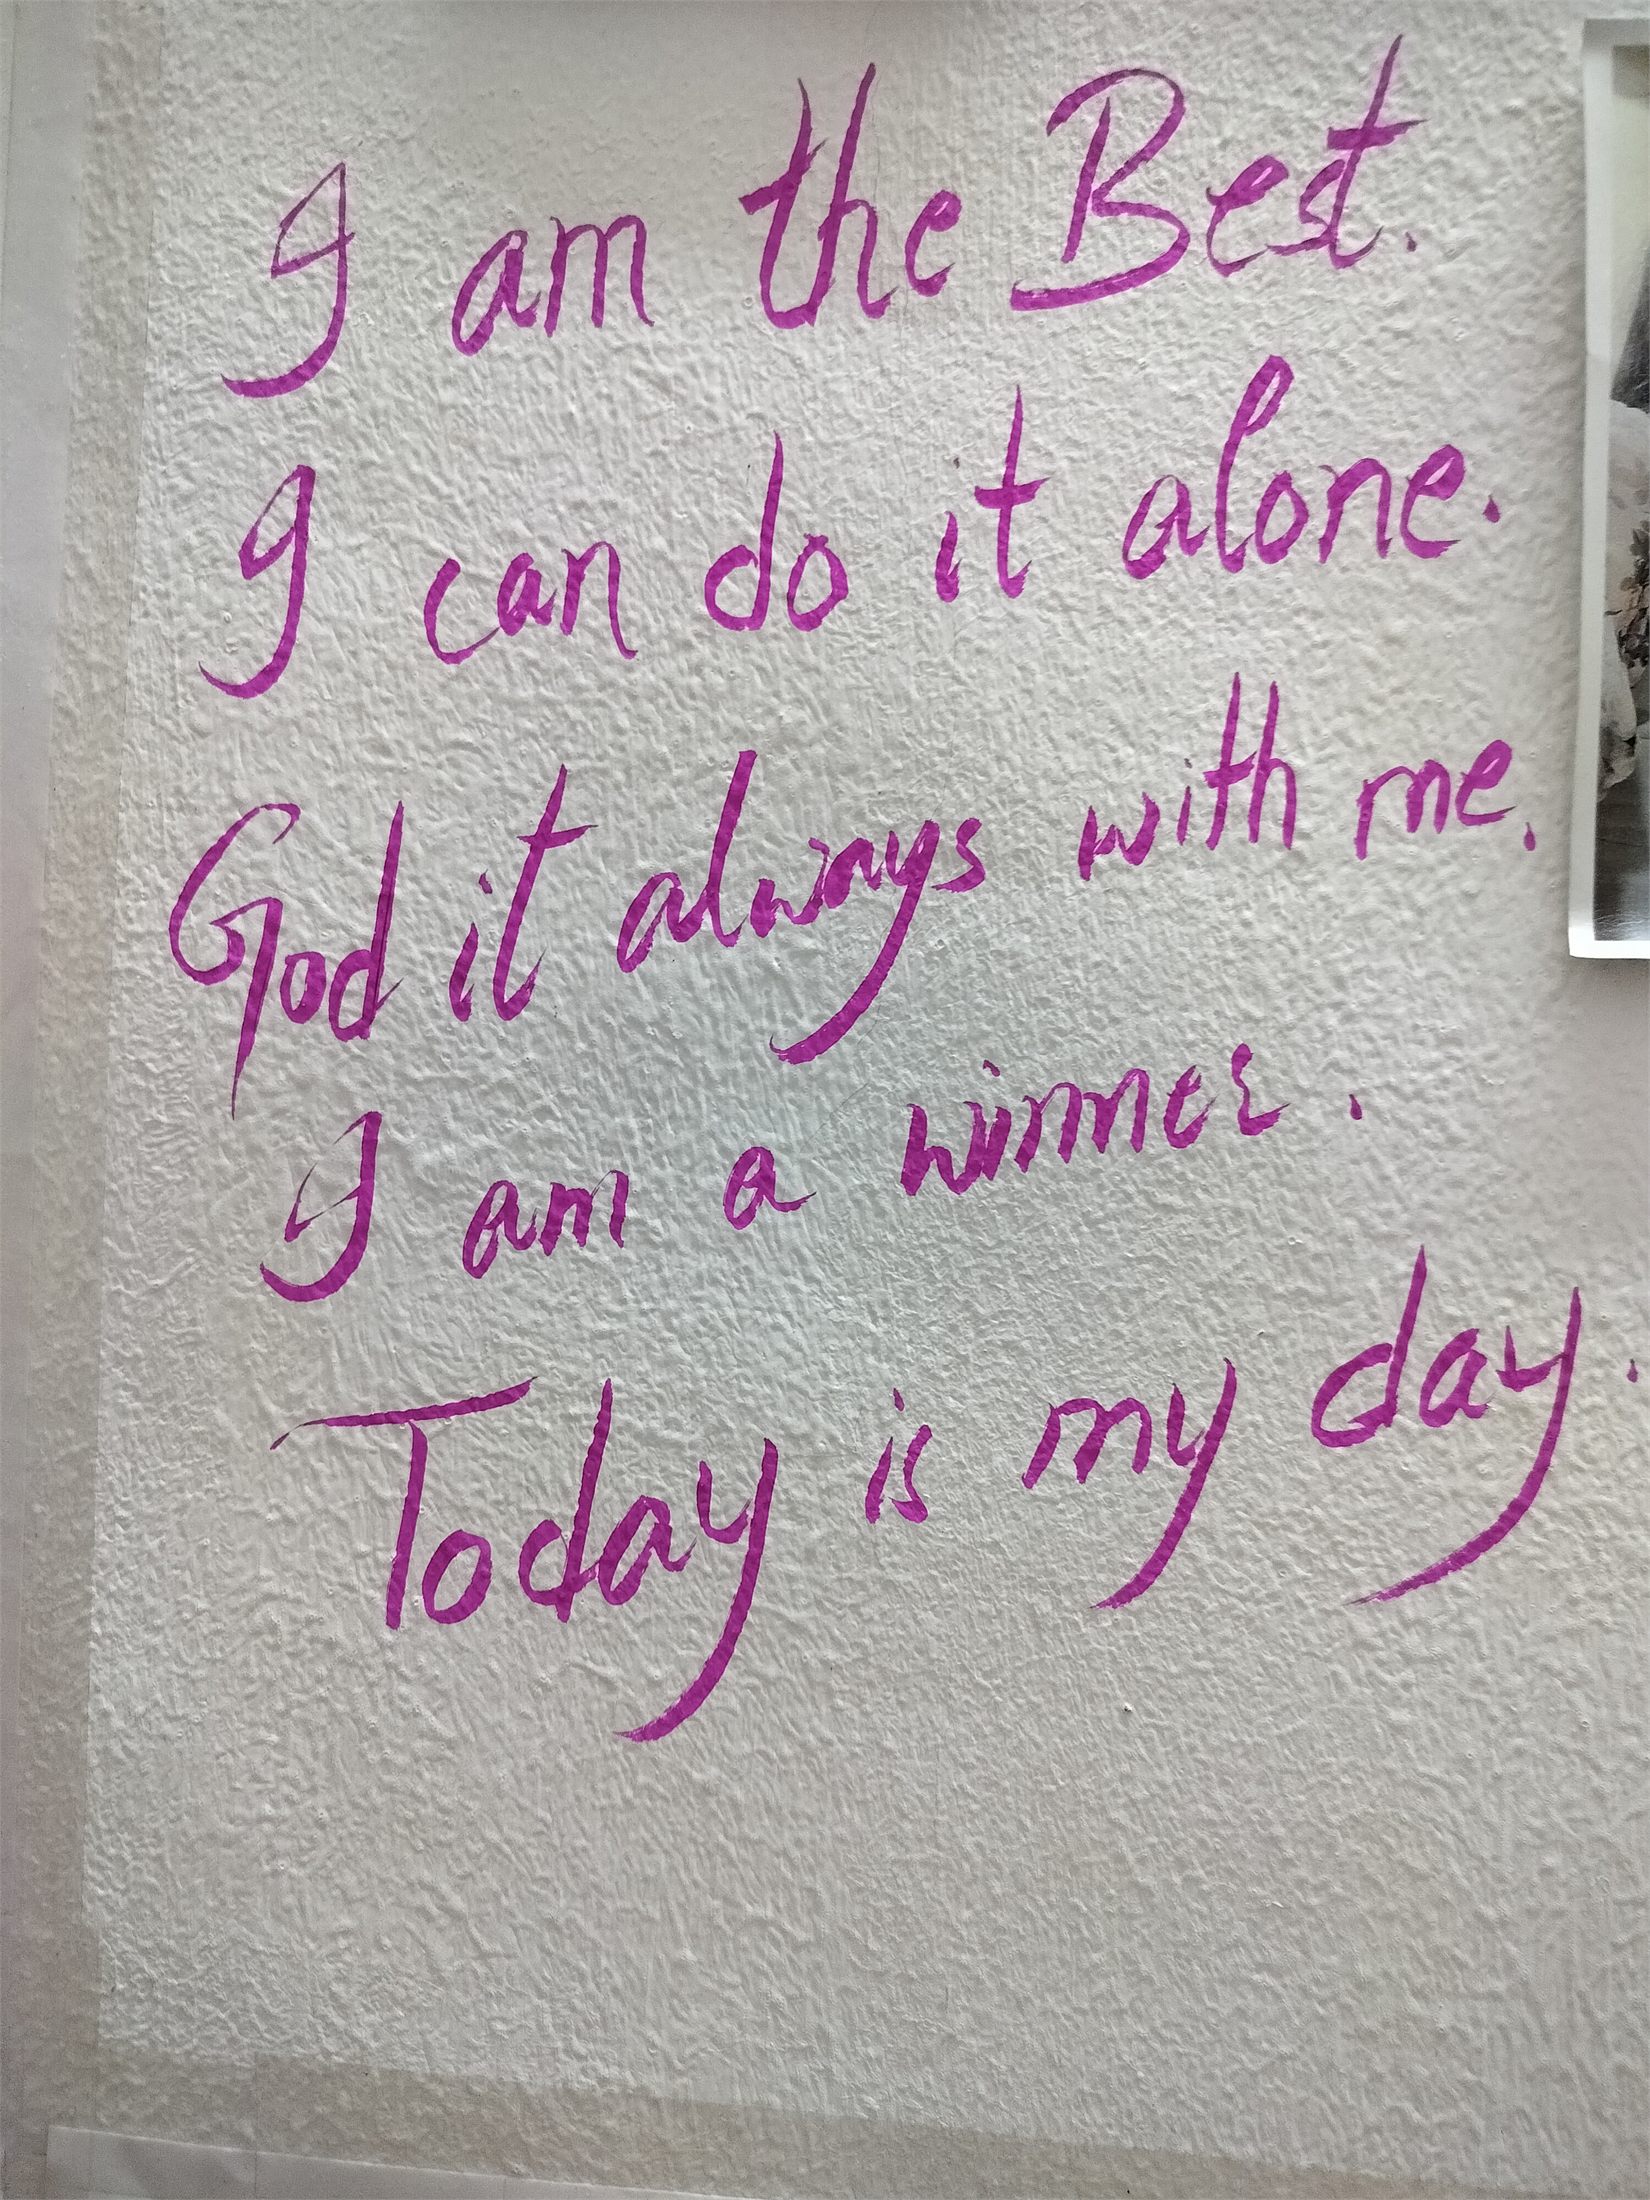 I am the Best.
I can do it alone.
God it always with me.
I am a winner.
Today is my day.